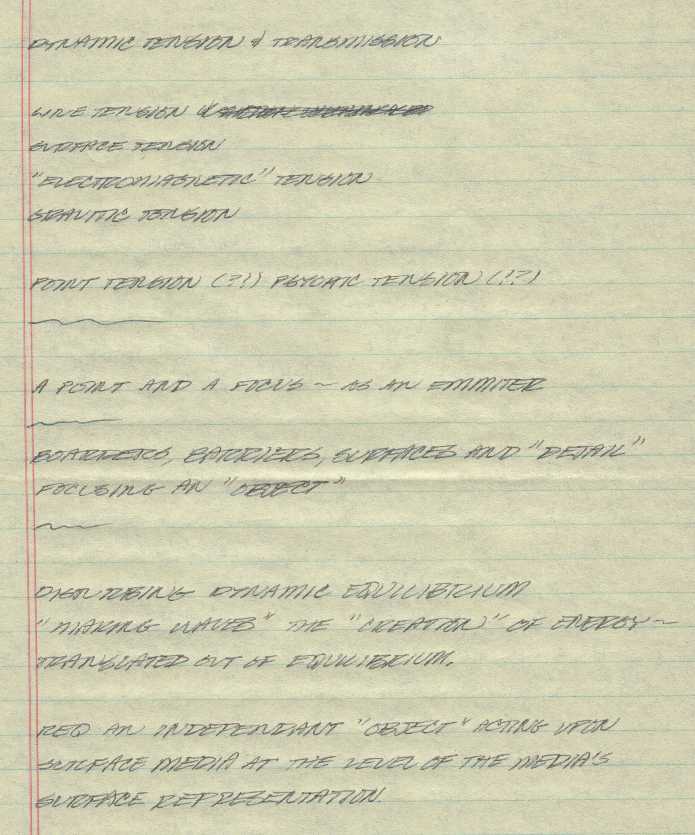 DYNAMIC TENSION & TRANSMISSION
LINE TENSION &
SURFACE TENSION
"ELECTROMAGNETIC" TENSION
GRAVITIC TENSION
POINT TENSION (??) PSYCHIC TENSION (!?)
A POINT AND A FOCUS ~ AS AN EMMITER
BOARDERS, BARRIERS, SURFACES AND "DETAIL"
FOCUSING AN "OBJECT"
DISTURBING DYNAMIC EQUILIBRIUM
"MAKING WAVES" THE "CREATION" OF ENERGY ~
TRANSLATED OUT OF EQUILIBRIUM.
REQ AN INDEPENDANT "OBJECT" ACTING UPON
SURFACE MEDIA AT THE LEVEL OF THE MEDIA'S
SURFACE REPRESENTATION.